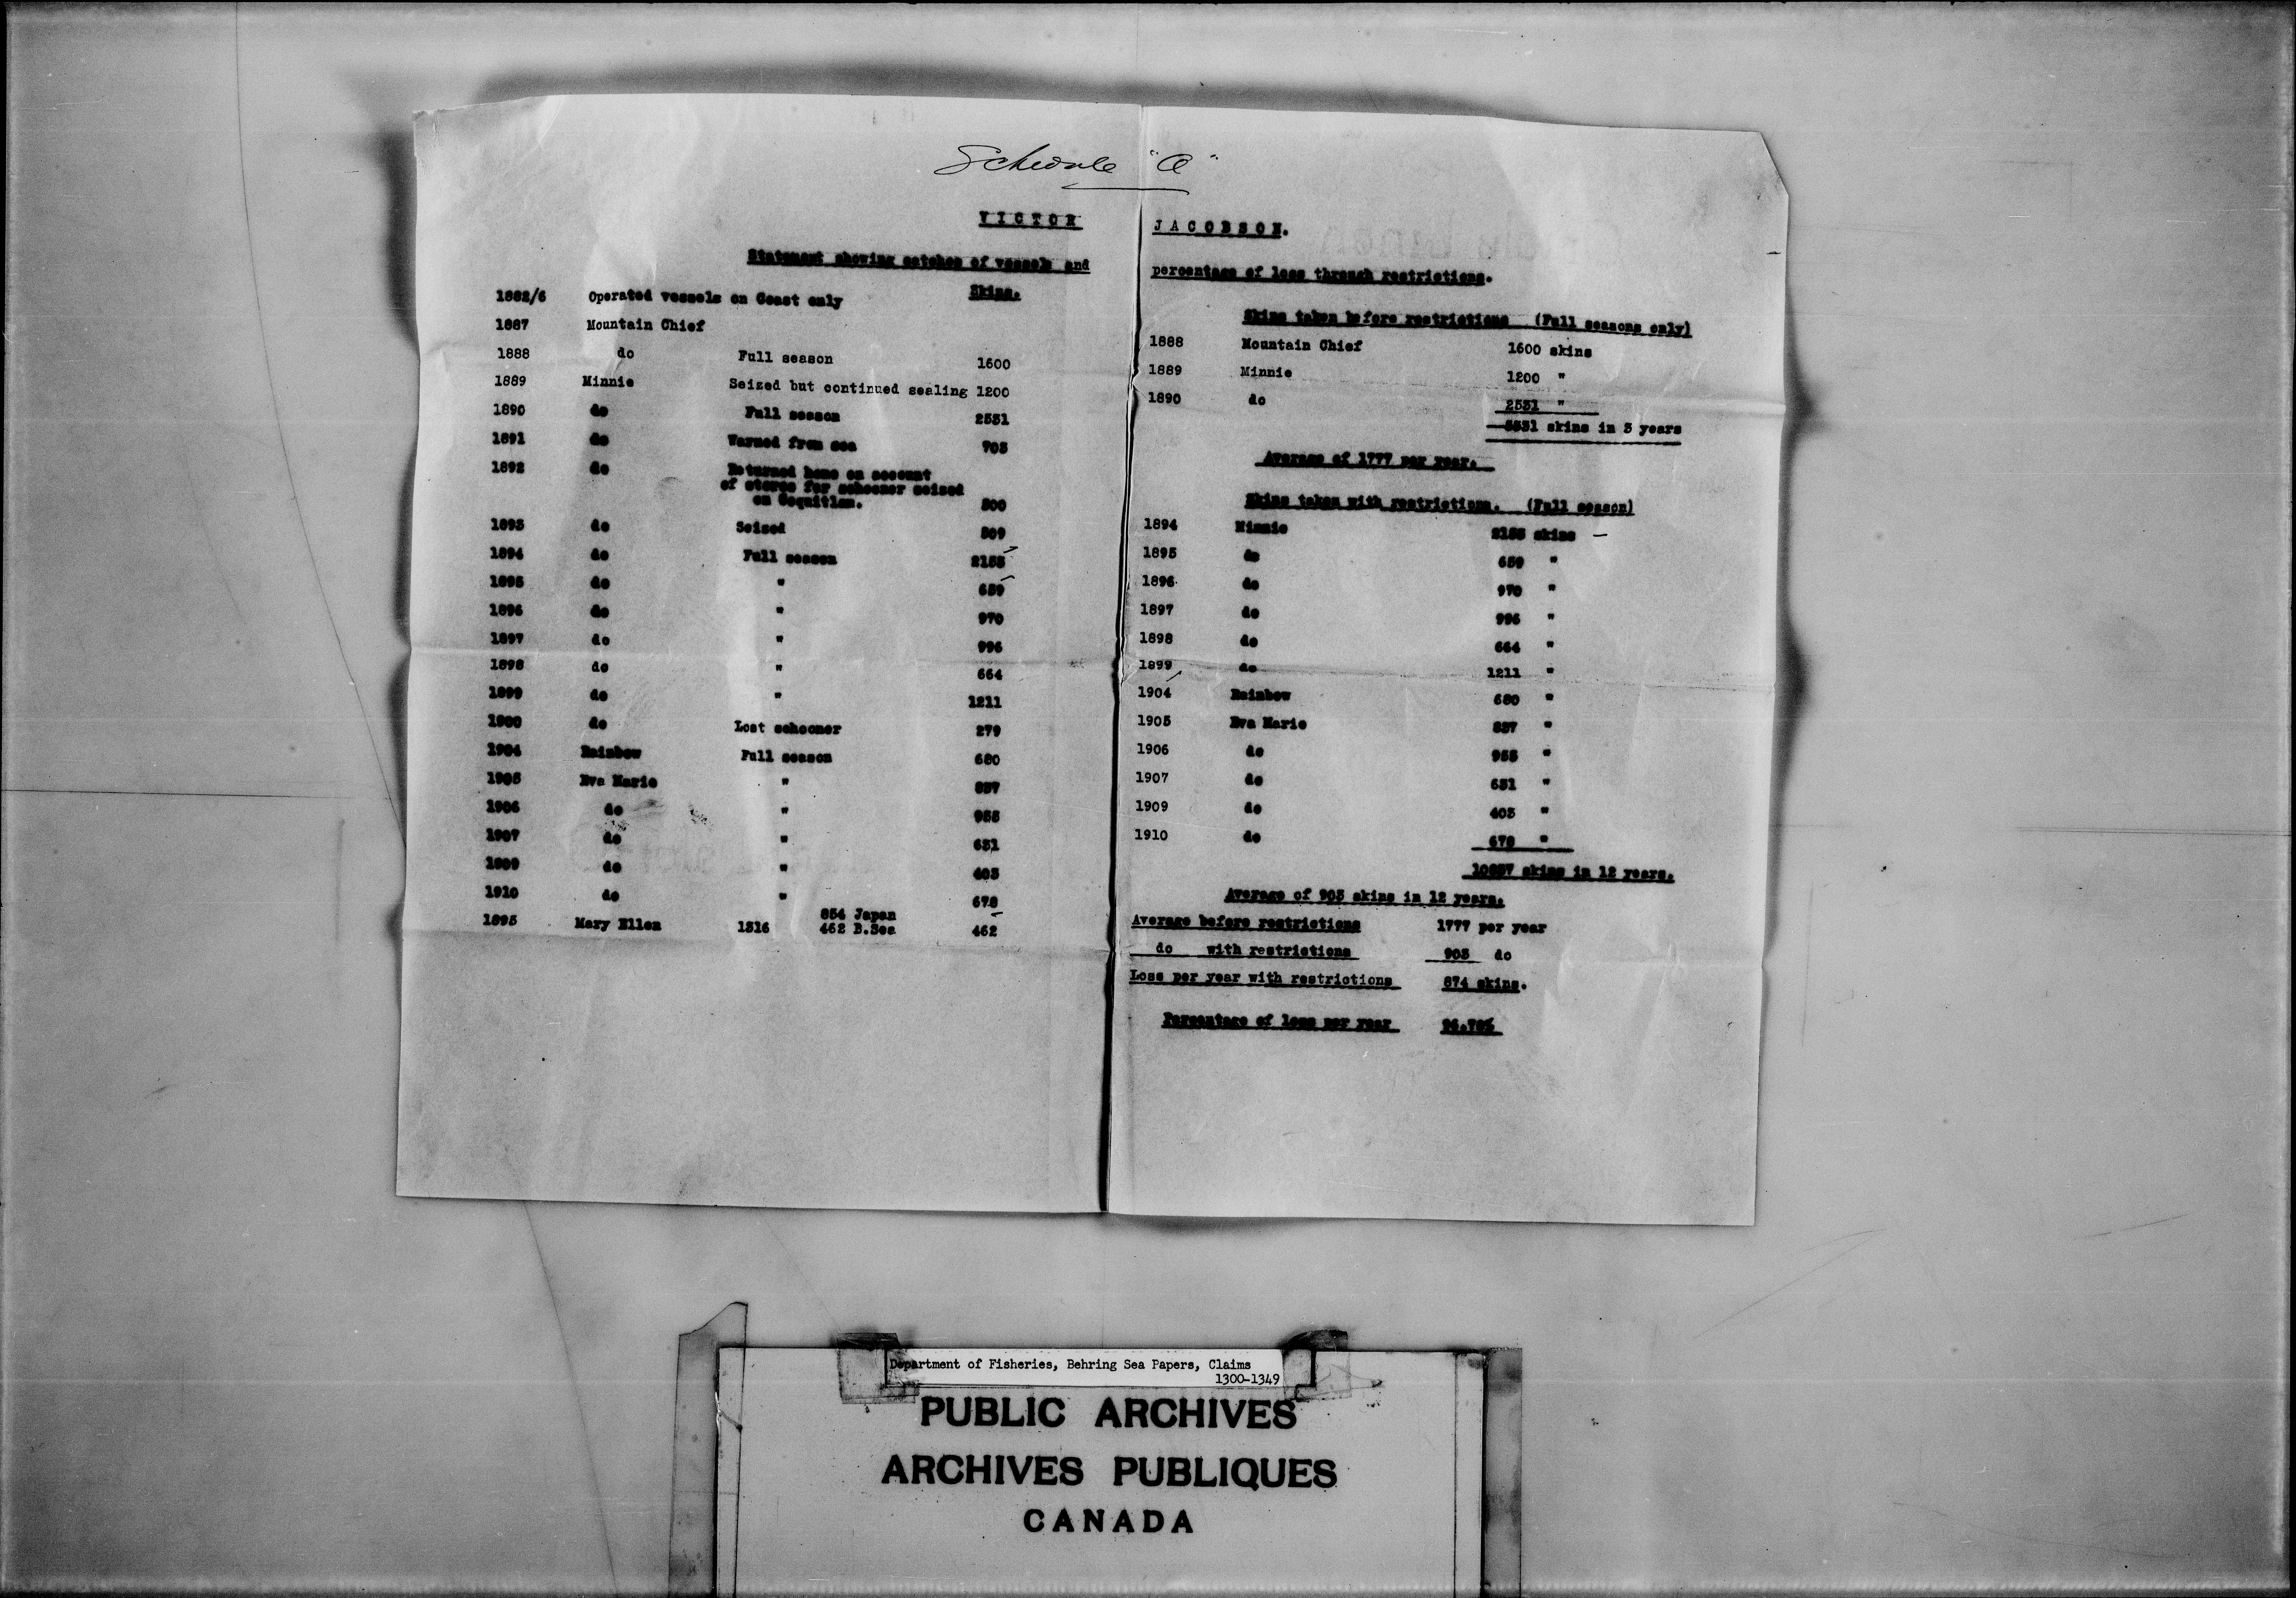 Schedule "A"
VICTOR JACOBSON.
Statement showing catches of vessels and percentage of loss through restrictions.
Skins.
1882/6 Operated vessels on Coast only
1887 Mountain Chief
1888 do Full season 1600
1889 Minnie Seized but continued sealing 1200
1890 do Full season 2531
1891 do Warned from sea 703
1892 do Returned home on account
of stores for schooner seized
on Coquitlam. 500
1893 do Seized 509
1894 do Full season 2153
1895 do " 659
1896 do " 970
1897 do " 996
1898 do " 664
1899 do " 1211
1900 do Lost schooner 279
1904 Rainbow Full season 680
1905 Eva Marie " 837
1906 do " 955
1907 do " 631
1909 do " 403
1910 do " 678
1895 Mary Ellen 1316 854 Japan
462 B.Sea 462
Skins taken before restrictions (Full seasons only)
1888 Mountain Chief 1600 skins
1889 Minnie 1200 "
1890 do 2531 "
5331 skins in 3 years
Average of 1777 per year.
Skins taken with restrictions. (Full season)
1894 Minnie 2153 skins
1895 do 659 "
1896 do 970 "
1897 do 996 "
1898 do 664 "
1899 do 1211 "
1904 Rainbow 680 "
1905 Eva Marie 837 "
1906 do 955 "
1907 do 631 "
1909 do 403 "
1910 do 678 "
10837 skins in 12 years.
Average of 903 skins in 12 years.
Average before restrictions 1777 per year
do with restrictions 903 do
Loss per year with restrictions 874 skins.
Percentage of loss per year 96.79%
Department of Fisheries, Behring Sea Papers, Claims
1300-1349
PUBLIC ARCHIVES
ARCHIVES PUBLIQUES
CANADA